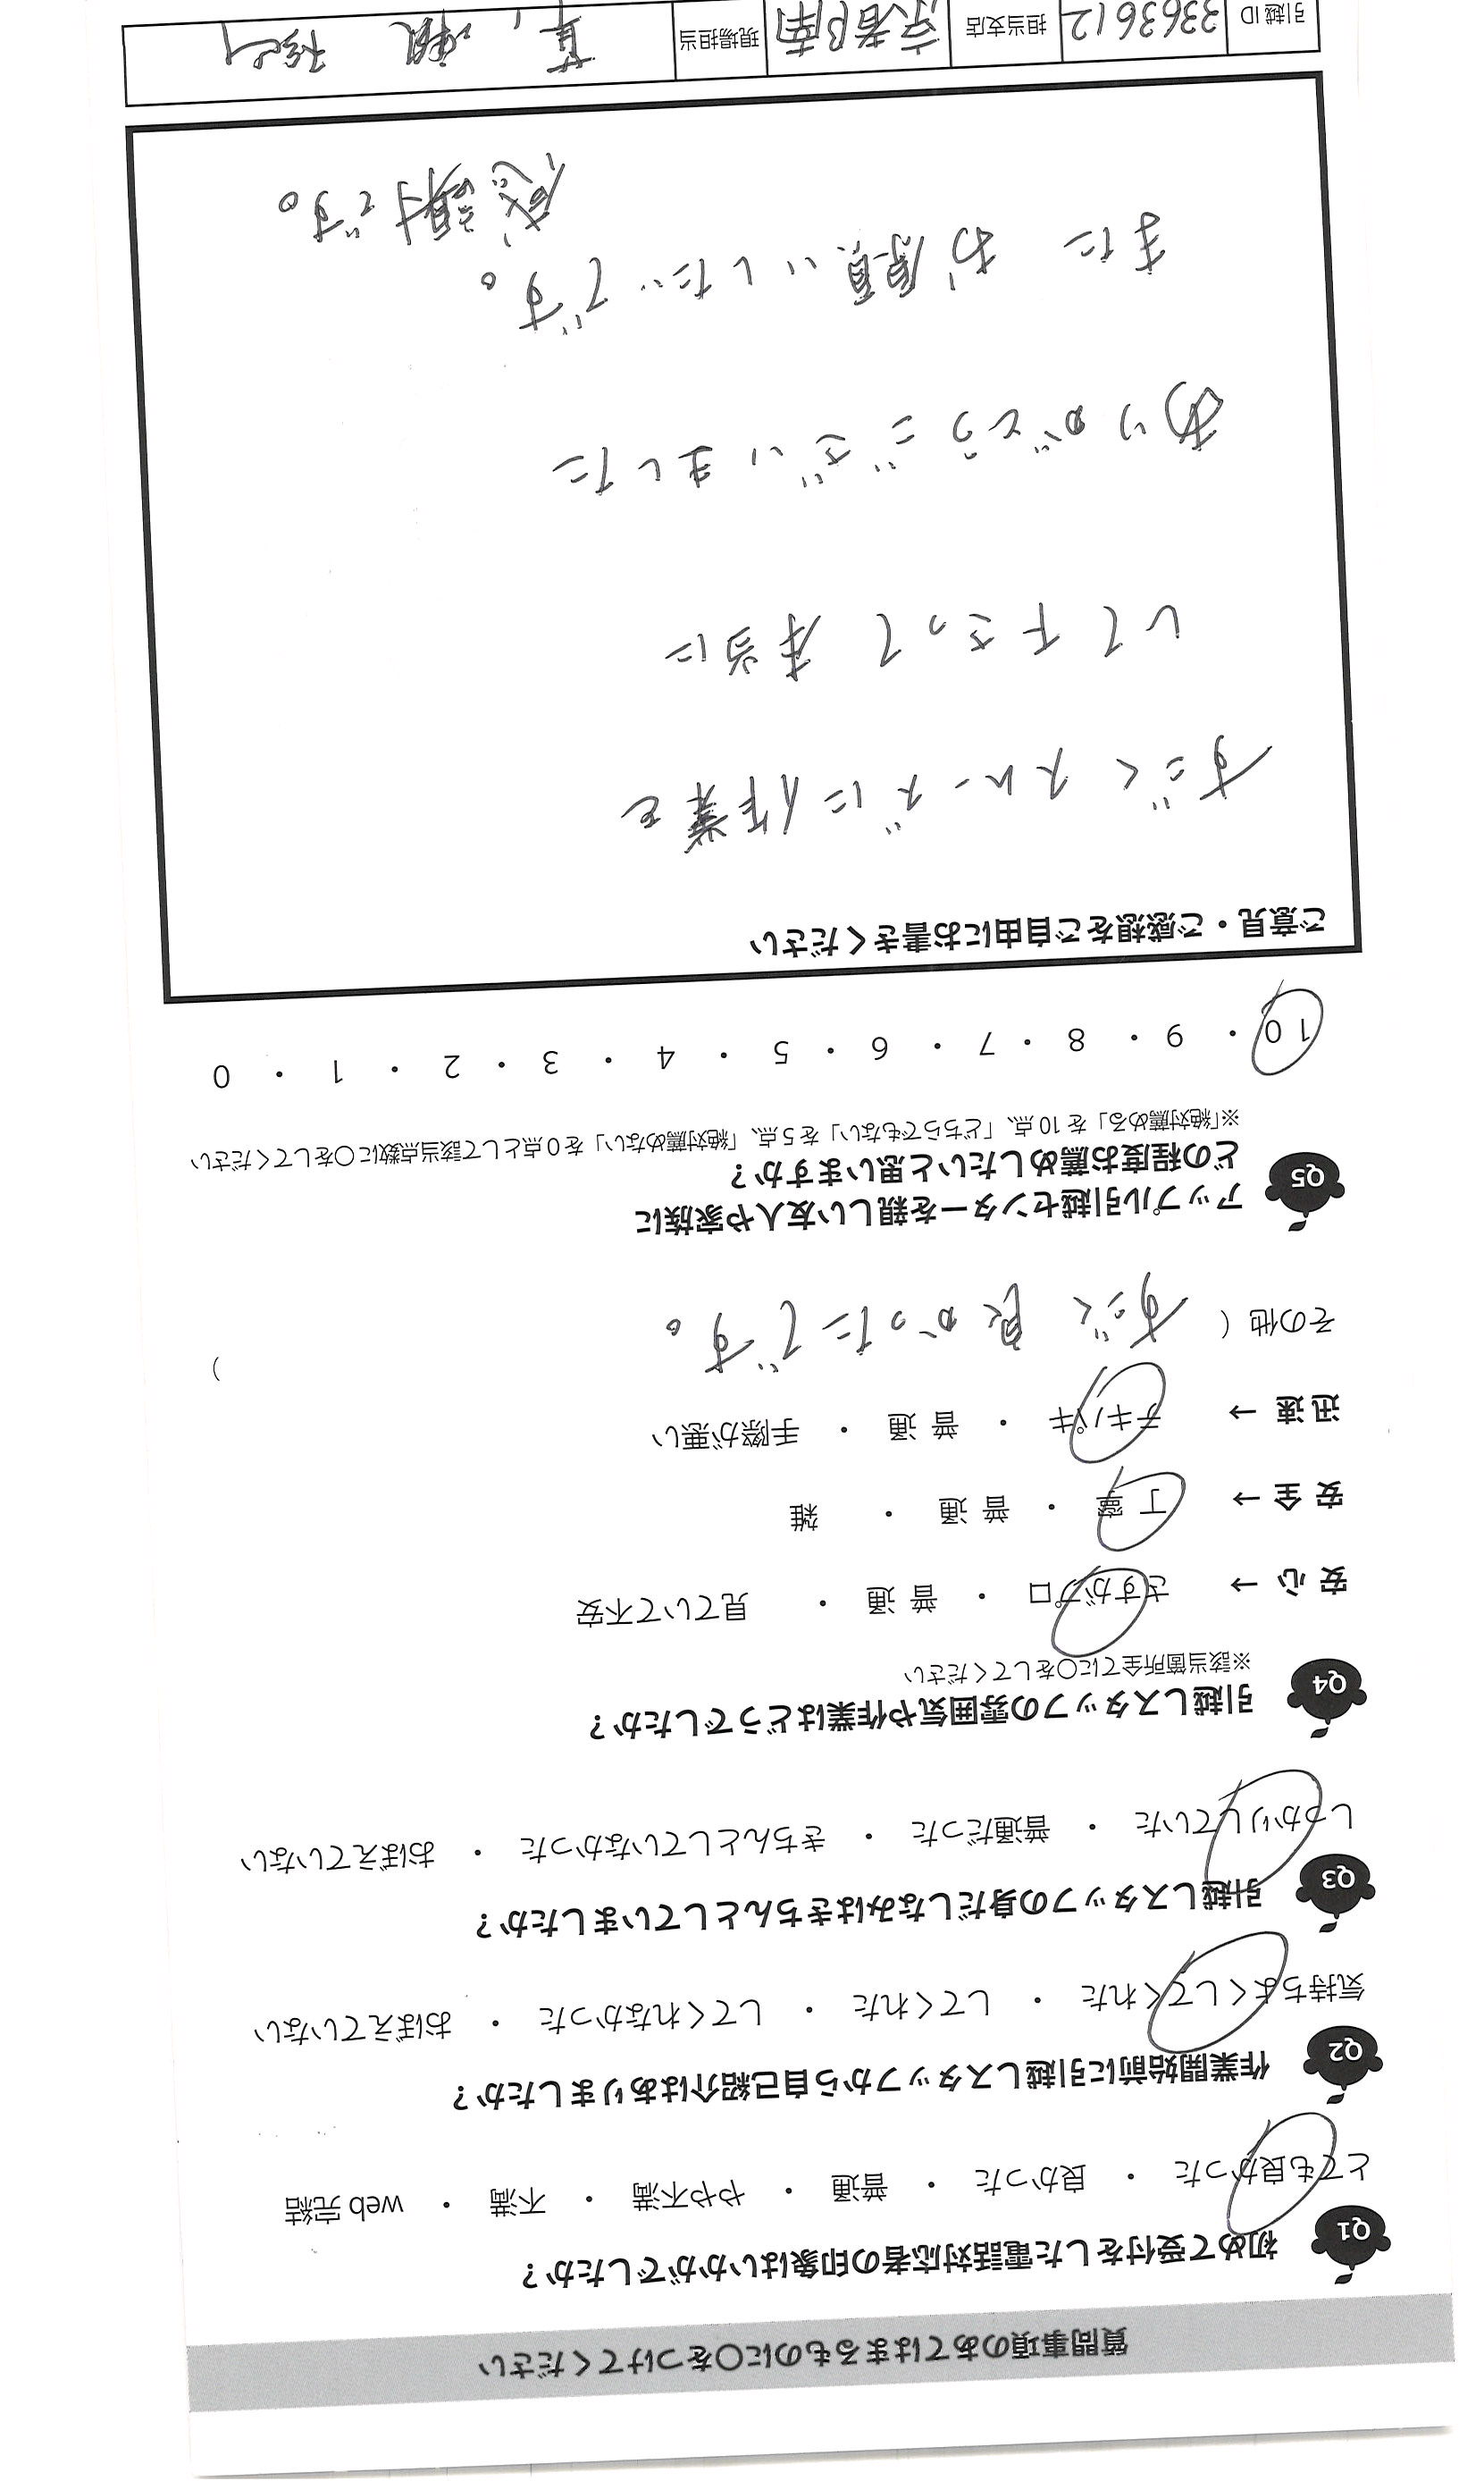 質問事項のあてはまるものに○をつけてください
Q1 初めて受付をした電話対応者の印象はいかがでしたか？
とても良かった ・ 良かった ・ 普通 ・ やや不満 ・ 不満 ・ web 完結
Q2 作業開始前に引越しスタッフから自己紹介はありましたか？
気持ちよくしてくれた ・ してくれた ・ してくれなかった ・ おぼえていない
Q3 引越しスタッフの身だしなみはきちんとしていましたか？
しっかりしていた ・ 普通だった ・ きちんとしていなかった ・ おぼえていない
Q4 引越しスタッフの雰囲気や作業はどうでしたか？
※該当箇所全てに○をしてください
安心 → さすがプロ ・ 普通 ・ 見ていて不安
安全 → 丁寧 ・ 普通 ・ 雑
迅速 → テキパキ ・ 普通 ・ 手際が悪い
その他（ すごく良かったです。 ）
Q5 アップル引越センターを親しい友人や家族に
どの程度お薦めしたいと思いますか？
※「絶対薦める」を 10 点、「どちらでもない」を 5 点、「絶対薦めない」を 0 点として該当点数に○をしてください
10 ・ 9 ・ 8 ・ 7 ・ 6 ・ 5 ・ 4 ・ 3 ・ 2 ・ 1 ・ 0
ご意見・ご感想をご自由にお書きください
すごくスムーズに作業を
して下さって 本当に
ありがとうございました
また お願いしたいです。
感謝です。
引越 ID 3363612 担当支店 京都南 現場担当